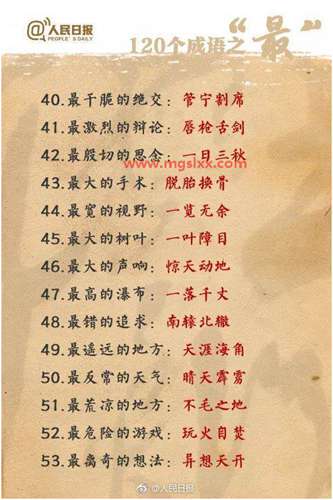 @人民日报
PEOPLE'S DAILY
120个成语之“最”
40.最干脆的绝交：管宁割席
41.最激烈的辩论：唇枪舌剑
42.最殷切的思念：一日三秋
www.mgslxx.com
43.最大的手术：脱胎换骨
44.最宽的视野：一览无余
45.最大的树叶：一叶障目
46.最大的声响：惊天动地
47.最高的瀑布：一落千丈
48.最错的追求：南辕北辙
49.最遥远的地方：天涯海角
50.最反常的天气：晴天霹雳
51.最荒凉的地方：不毛之地
52.最危险的游戏：玩火自焚
53.最离奇的想法：异想天开
@人民日报